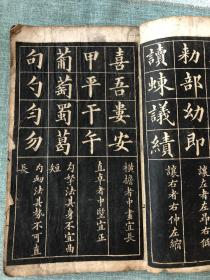 勅部幼即
讓左者左昂右低
讀蝀議績
讓右者右伸左縮
喜吾婁安
橫擔者中畫宜長
甲平干午
直卓者中豎宜正
葡萄蜀葛
勾努法其身不宜曲
短
句勺勻勿
法其勢不可直
長